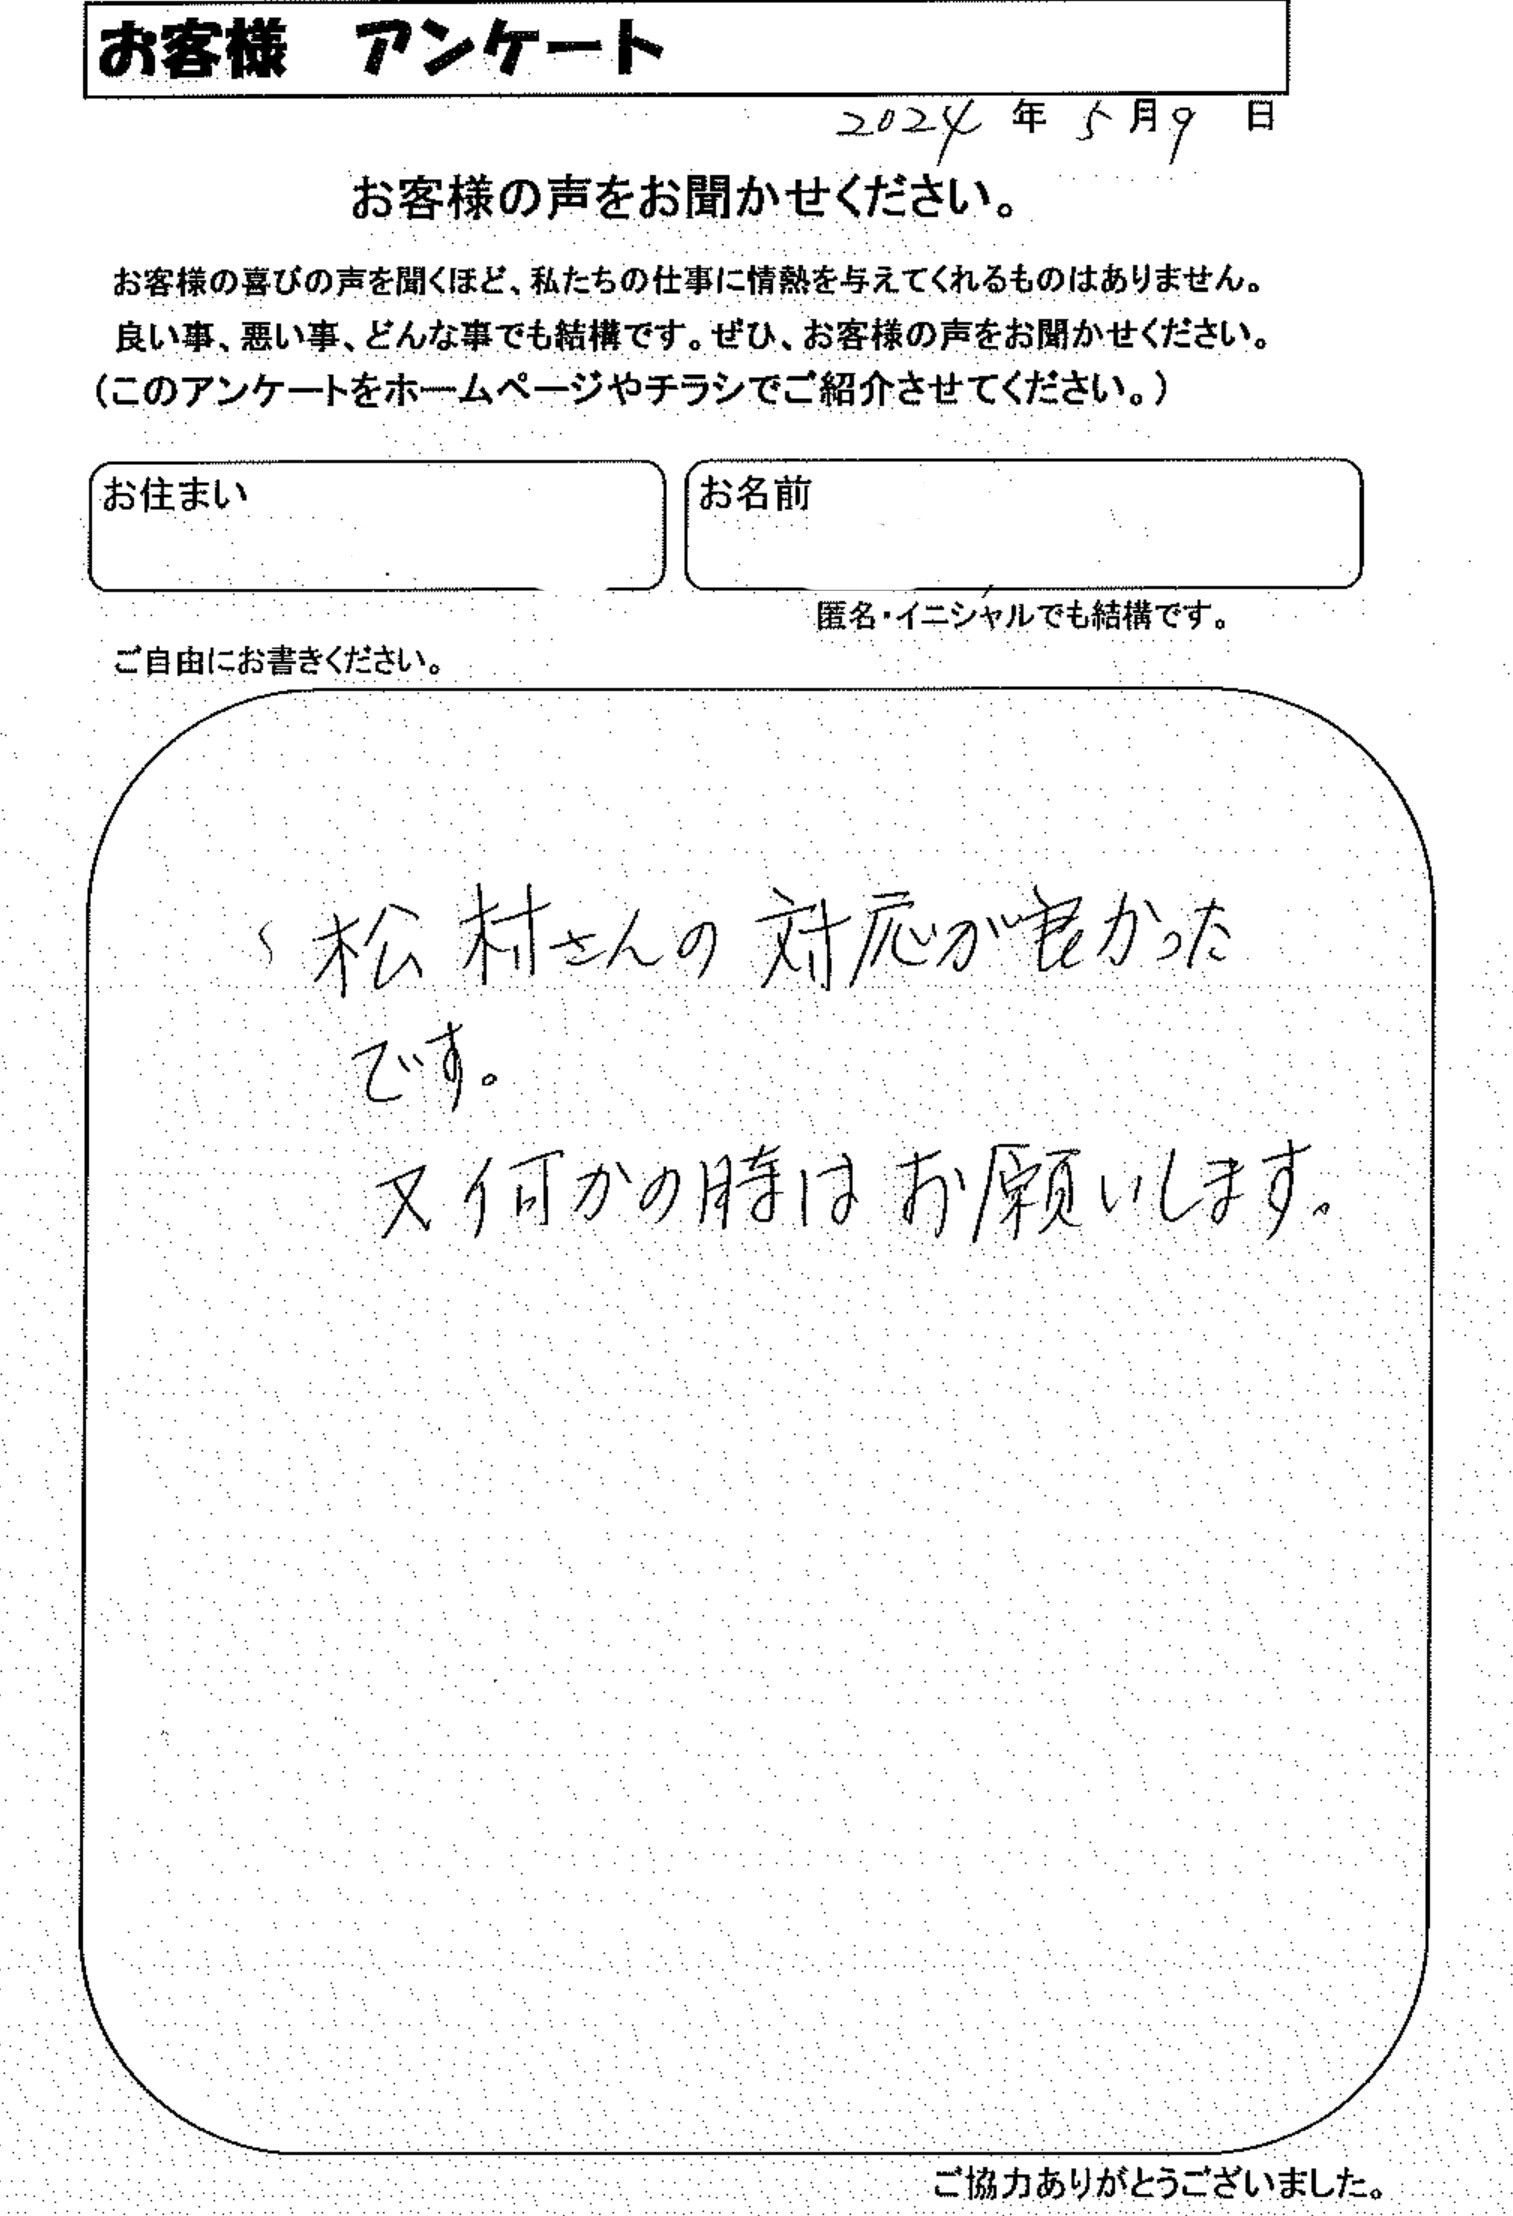 お客様　アンケート
2024 年 5 月 9 日
お客様の声をお聞かせください。
お客様の喜びの声を聞くほど、私たちの仕事に情熱を与えてくれるものはありません。
良い事、悪い事、どんな事でも結構です。ぜひ、お客様の声をお聞かせください。
（このアンケートをホームページやチラシでご紹介させてください。）
お住まい
お名前
匿名・イニシャルでも結構です。
ご自由にお書きください。
松村さんの対応が良かった
です。
又何かの時はお願いします。
ご協力ありがとうございました。